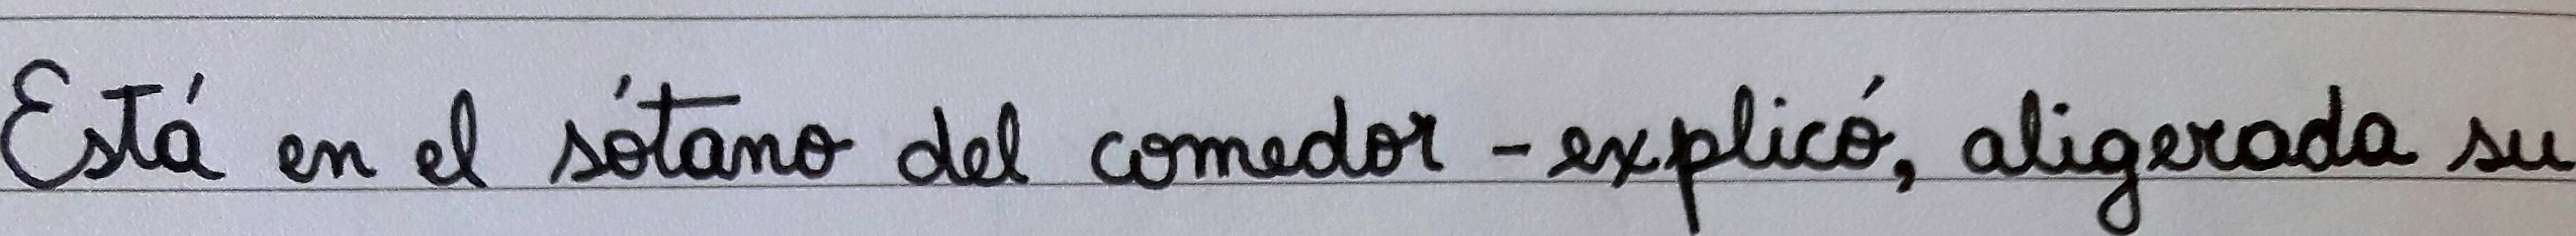 Está en el sótano del comedor -explicó, aligerada su